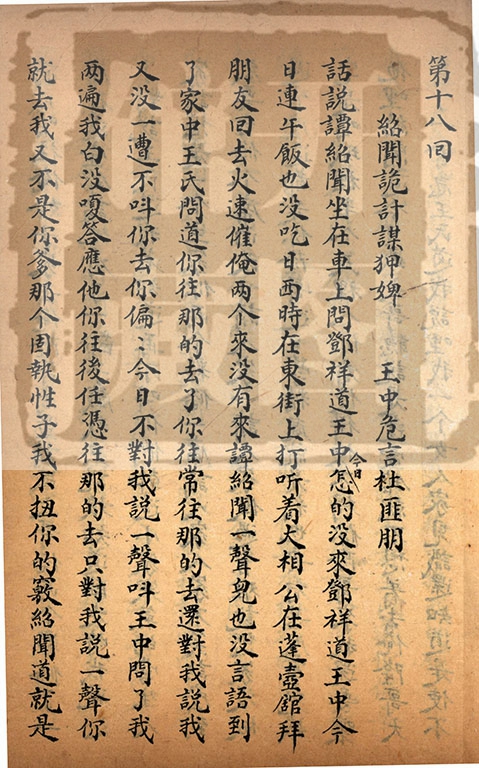 第十八回
紹聞詭計謀狎婢　王中危言杜匪朋
話說譚紹聞坐在車上問鄧祥道王中今日怎的没來鄧祥道王中今
日連午飯也没吃日西時在東街上打听着大相公在蓬壺舘拜
朋友回去火速催俺两个來没有來譚紹聞一聲兒也没言語到
了家中王氏問道你往那的去了你往常往那的去還對我說我
又没一遭不呌你去你偏〻今日不對我說一聲呌王中問了我
两遍我白没嗄答應他你往後任憑往那的去只對我說一聲你
就去我又不是你爹那个固執性子我不扭你的竅紹聞道就是